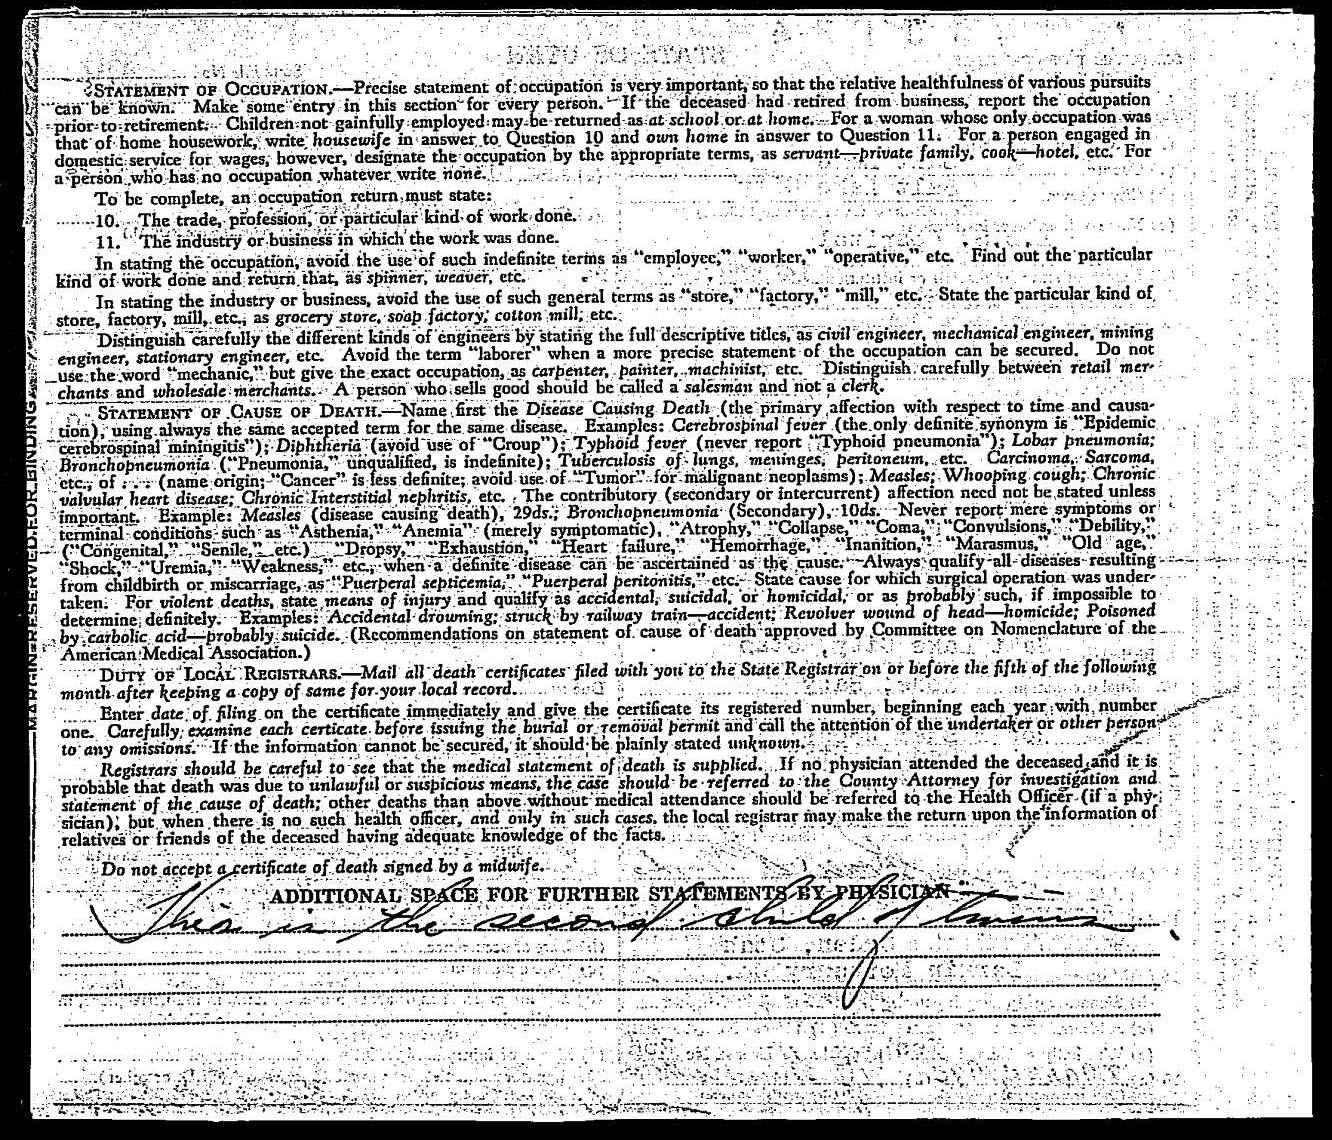 STATEMENT OF OCCUPATION.—Precise statement of occupation is very important, so that the relative healthfulness of various pursuits
can be known. Make some entry in this section for every person. If the deceased had retired from business, report the occupation
prior to retirement. Children not gainfully employed may be returned as at school or at home. For a woman whose only occupation was
that of home housework, write housewife in answer to Question 10 and own home in answer to Question 11. For a person engaged in
domestic service for wages, however, designate the occupation by the appropriate terms, as servant—private family, cook—hotel, etc. For
a person who has no occupation whatever write none.
To be complete, an occupation return must state:
10. The trade, profession, or particular kind of work done.
11. The industry or business in which the work was done.
In stating the occupation, avoid the use of such indefinite terms as "employee," "worker," "operative," etc. Find out the particular
kind of work done and return that, as spinner, weaver, etc.
In stating the industry or business, avoid the use of such general terms as "store," "factory," "mill," etc. State the particular kind of
store, factory, mill, etc., as grocery store, soap factory, cotton mill, etc.
Distinguish carefully the different kinds of engineers by stating the full descriptive titles, as civil engineer, mechanical engineer, mining
engineer, stationary engineer, etc. Avoid the term "laborer" when a more precise statement of the occupation can be secured. Do not
use the word "mechanic," but give the exact occupation, as carpenter, painter, machinist, etc. Distinguish carefully between retail mer-
chants and wholesale merchants. A person who sells good should be called a salesman and not a clerk.
STATEMENT OF CAUSE OF DEATH.—Name first the Disease Causing Death (the primary affection with respect to time and causa-
tion), using always the same accepted term for the same disease. Examples: Cerebrospinal fever (the only definite synonym is "Epidemic
cerebrospinal miningitis"); Diphtheria (avoid use of "Croup"); Typhoid fever (never report "Typhoid pneumonia"); Lobar pneumonia;
Bronchopneumonia ("Pneumonia," unqualified, is indefinite); Tuberculosis of lungs, meninges, peritoneum, etc. Carcinoma, Sarcoma,
etc., of . . . (name origin; "Cancer" is less definite; avoid use of "Tumor" for malignant neoplasms); Measles; Whooping cough; Chronic
valvular heart disease; Chronic Interstitial nephritis, etc. The contributory (secondary or intercurrent) affection need not be stated unless
important. Example: Measles (disease causing death), 29ds.; Bronchopneumonia (Secondary), 10ds. Never report mere symptoms or
terminal conditions such as "Asthenia," "Anemia" (merely symptomatic), "Atrophy," "Collapse," "Coma," "Convulsions," "Debility,"
("Congenital," "Senile," etc.) "Dropsy," "Exhaustion," "Heart failure," "Hemorrhage," "Inanition," "Marasmus," "Old age,"
"Shock," "Uremia," "Weakness," etc., when a definite disease can be ascertained as the cause. Always qualify all diseases resulting
from childbirth or miscarriage, as "Puerperal septicemia," "Puerperal peritonitis," etc. State cause for which surgical operation was under-
taken. For violent deaths, state means of injury and qualify as accidental, suicidal, or homicidal, or as probably such, if impossible to
determine definitely. Examples: Accidental drowning; struck by railway train—accident; Revolver wound of head—homicide; Poisoned
by carbolic acid—probably suicide. (Recommendations on statement of cause of death approved by Committee on Nomenclature of the
American Medical Association.)
DUTY OF LOCAL REGISTRARS.—Mail all death certificates filed with you to the State Registrar on or before the fifth of the following
month after keeping a copy of same for your local record.
Enter date of filing on the certificate immediately and give the certificate its registered number, beginning each year with number
one. Carefully examine each certicate before issuing the burial or removal permit and call the attention of the undertaker or other person
to any omissions. If the information cannot be secured, it should be plainly stated unknown.
Registrars should be careful to see that the medical statement of death is supplied. If no physician attended the deceased, and it is
probable that death was due to unlawful or suspicious means, the case should be referred to the County Attorney for investigation and
statement of the cause of death; other deaths than above without medical attendance should be referred to the Health Officer (if a phy-
sician), but when there is no such health officer, and only in such cases, the local registrar may make the return upon the information of
relatives or friends of the deceased having adequate knowledge of the facts.
Do not accept a certificate of death signed by a midwife.
ADDITIONAL SPACE FOR FURTHER STATEMENTS BY PHYSICIAN
This is the second child of twins
MARGIN RESERVED FOR BINDING